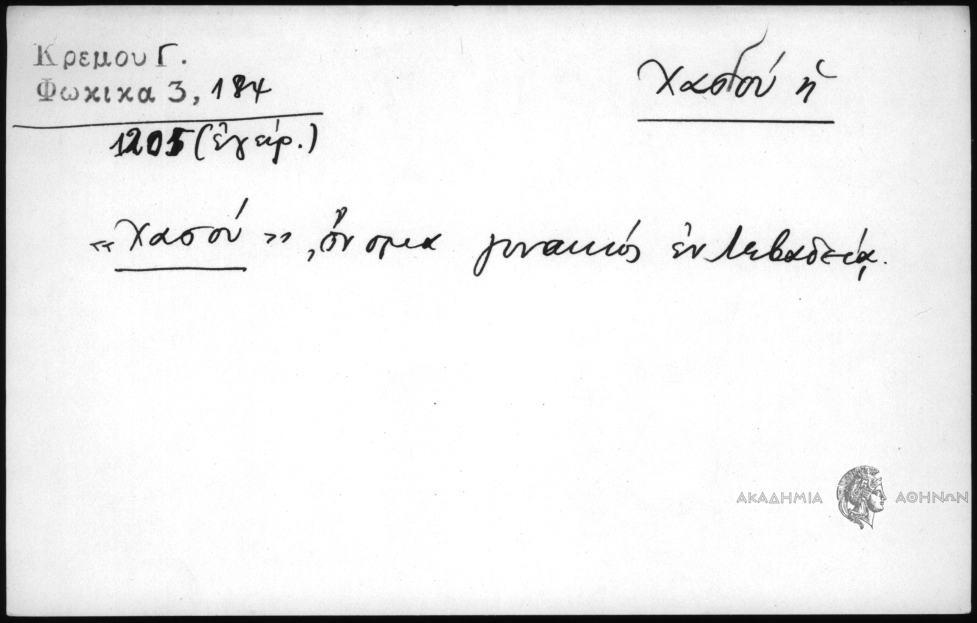 Κρεμου Γ.
Φωκικα 3, 184
1205 (ἐγείρ.)
Χασού ἡ
«Χασού», ὄνομα γυναικός ἐν Λεβαδείᾳ.
ΑΚΑΔΗΜΙΑ ΑΘΗΝΩΝ